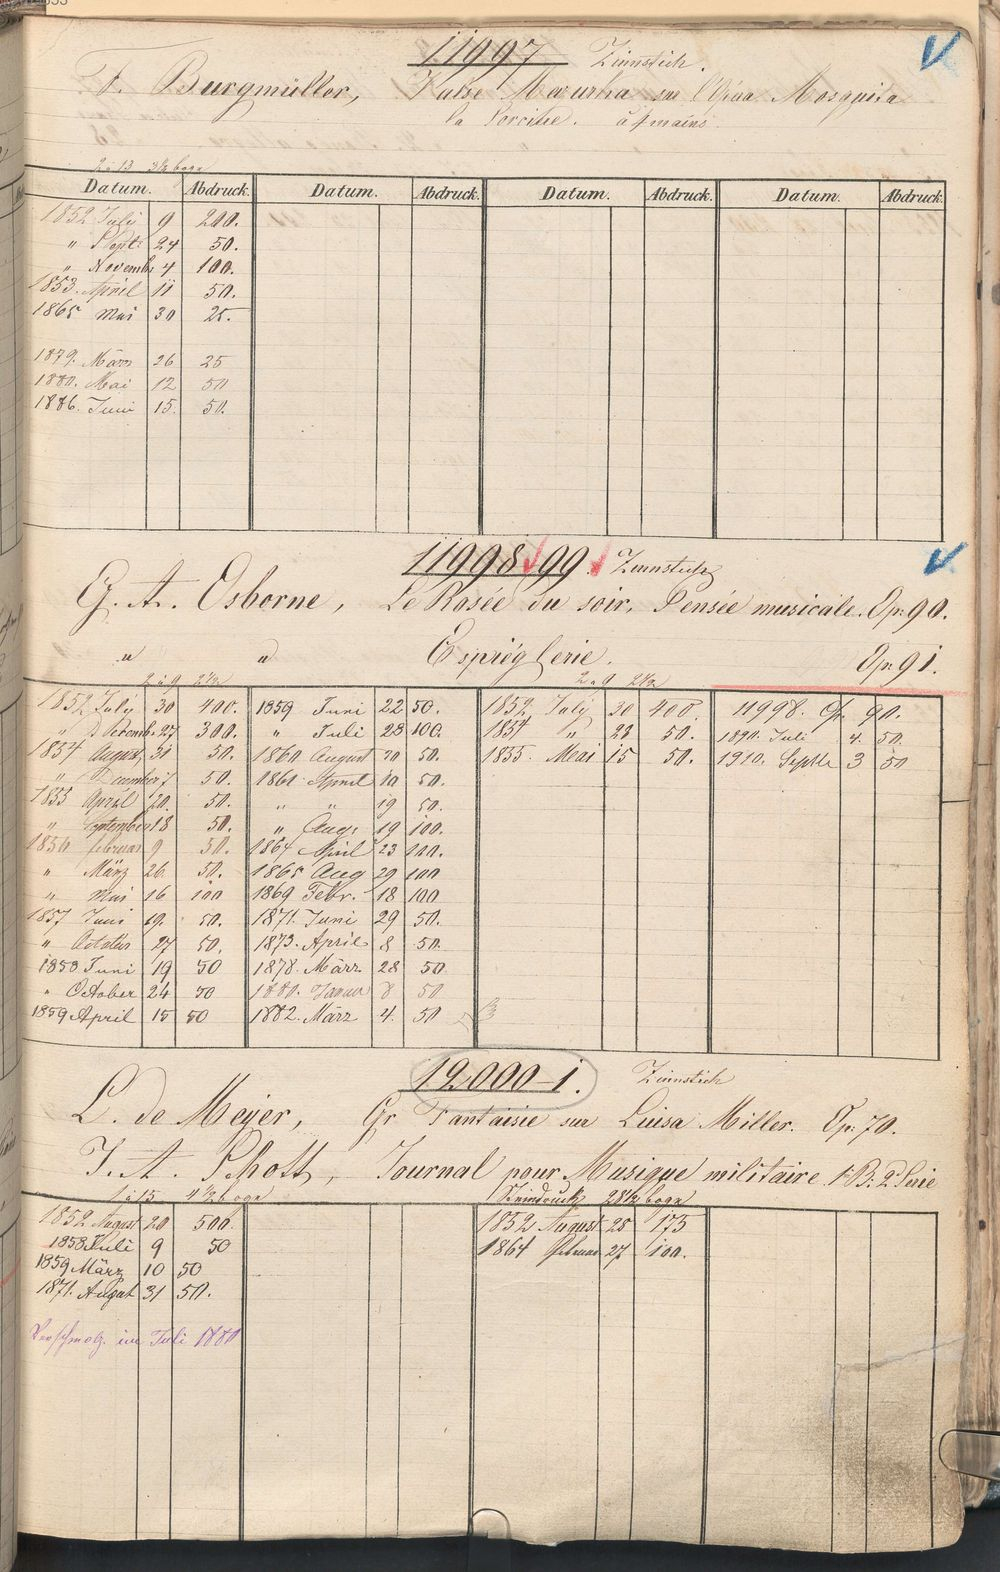 11997 Zinnstich.
F. Burgmüller, Valse Mazurka sur l'Opéra Mosquita
la Sorcière. à 4 mains.
2 à 13 3½ bogn
Datum. Abdruck. Datum. Abdruck. Datum. Abdruck. Datum. Abdruck.
1852 Juli 9 200.
" Sept. 24 50.
" Novembr 4 100.
1853. April 11 50.
1865 Mai 30 25.
1879. März 26 25
1880. Mai 12 50
1886. Juni 15. 50.
11998/99. Zinnstich
G. A. Osborne, Le Rosée du soir, Pensée musicale. Op: 90.
" " Espièglerie. Op: 91.
2 à 9 2½ 2 à 9 2½
1852 July 30 400. 1859 Juni 22 50. 1852 July 30 400. 11998. Op. 90.
" Decemb. 27 300. " Juli 28 100. 1854 " 28 50. 1890. Juli 4. 50.
1854 August 31 50. 1860 August 20 50. 1855. Mai 15 50. 1910. Septbr 3 50
" December 7 50. 1861 April 10 50.
1855 April 20. 50. " " 19 50.
" September 18 50. " Augs 19 100.
1856 februar 9 50. 1864 April 23 100.
" März 26. 50. 1865 Aug 29 100
" Mai 16 100 1869 Febr. 18 100
1857 Juni 19. 50. 1871. Juni 29 50.
" October 27 50. 1873. April 8 50.
1858 Juni 19 50 1878. März 28 50.
" October 24 50 1880. Januar 8 50
1859 April 15 50 1882. März 4. 50
12000-1. Zinnstich
L. de Meyer, Gr. Fantaisie sur Luisa Miller. Op: 70.
J. A. Schott, Journal pour Musique militaire 1 B: 2e Serie
1 à 15 4½ bogn Steindruck 28½ bogn
1852 August 20 500. 1852 August 25 175
1858 Juli 9 50 1864 februar 27 100.
1859 März 10 50
1871. August 31 50.
Verschmolz. im Juli 1881